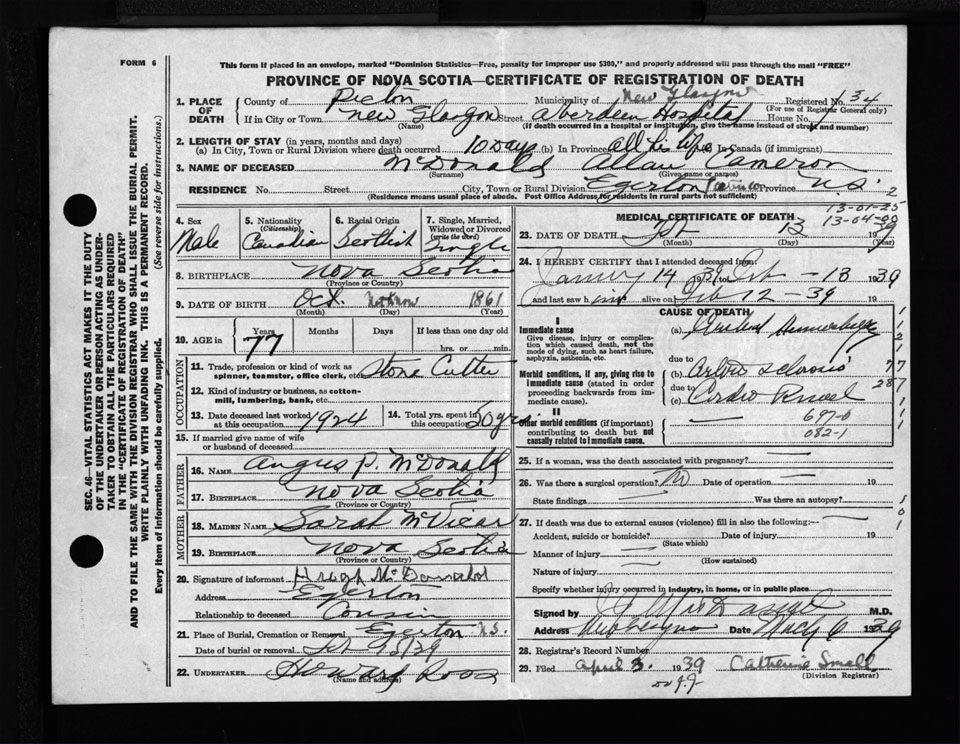 FORM 6
This form if placed in an envelope, marked "Dominion Statistics—Free, penalty for improper use $300," and properly addressed will pass through the mail "FREE"
PROVINCE OF NOVA SCOTIA—CERTIFICATE OF REGISTRATION OF DEATH
SEC. 46—VITAL STATISTICS ACT MAKES IT THE DUTY
OF THE UNDERTAKER OR PERSON ACTING AS UNDER-
TAKER TO OBTAIN ALL THE PARTICULARS REQUIRED
IN THE "CERTIFICATE OF REGISTRATION OF DEATH"
AND TO FILE THE SAME WITH THE DIVISION REGISTRAR WHO SHALL ISSUE THE BURIAL PERMIT.
WRITE PLAINLY WITH UNFADING INK. THIS IS A PERMANENT RECORD.
Every item of Information should be carefully supplied. (See reverse side for instructions.)
1. PLACE OF DEATH
County of Pictou Municipality of New Glasgow Registered No. 134
(For use of Registrar General only)
If in City or Town New Glasgow Street Aberdeen Hospital House No.
(Name) (If death occurred in a hospital or institution, give the name instead of street and number)
2. LENGTH OF STAY (in years, months and days)
(a) In City, Town or Rural Division where death occurred 10 Days (b) In Province All his life (c) In Canada (if immigrant)
3. NAME OF DECEASED McDonald Allan Cameron
(Surname) (Given name or names)
RESIDENCE No. Street City, Town or Rural Division Egerton Province N.S. 2
(Residence means usual place of abode. Post Office Address for residents in rural parts not sufficient)
4. Sex Male
5. Nationality (Citizenship) Canadian
6. Racial Origin Scottish
7. Single, Married, Widowed or Divorced (write the word) Single
8. BIRTHPLACE Nova Scotia
(Province or Country)
9. DATE OF BIRTH Oct. Not know 1861
(Month) (Day) (Year)
10. AGE in Years 77 Months Days If less than one day old
hrs. or min.
OCCUPATION
11. Trade, profession, or kind of work as spinner, teamster, office clerk, etc. Stone Cutter
12. Kind of industry or business, as cotton-mill, lumbering, bank, etc.
13. Date deceased last worked at this occupation 1924
14. Total yrs. spent in this occupation 50 yrs
15. If married give name of wife or husband of deceased
FATHER
16. NAME Angus P. McDonald
17. BIRTHPLACE Nova Scotia
(Province or Country)
MOTHER
18. MAIDEN NAME Sarah McVicar
19. BIRTHPLACE Nova Scotia
(Province or Country)
20. Signature of informant Hugh McDonald
Address Egerton
Relationship to deceased Cousin
21. Place of Burial, Cremation or Removal Egerton N.S.
Date of burial or removal
22. UNDERTAKER Howard Ross
(Name and address)
13-01-25
13-04-39
MEDICAL CERTIFICATE OF DEATH
23. DATE OF DEATH Feb 13 39
(Month) (Day) (Year)
24. I HEREBY CERTIFY that I attended deceased from:
14 39 to Feb - 13 1939
and last saw him alive on Feb 12 - 39 19
CAUSE OF DEATH
I
Immediate cause
Give disease, injury or complication which caused death, not the mode of dying, such as heart failure, asphyxia, asthenia, etc.
(a)
due to
Morbid conditions, if any, giving rise to immediate cause (stated in order proceeding backwards from immediate cause).
(b) Arterio sclerosis
due to
(c) Cardio Renal
II
Other morbid conditions (if important) contributing to death but not causally related to immediate cause.
697-0
082-1
25. If a woman, was the death associated with pregnancy?
26. Was there a surgical operation? No Date of operation 19
State findings Was there an autopsy?
27. If death was due to external causes (violence) fill in also the following:
Accident, suicide or homicide? Date of injury 19
(State which)
Manner of injury
(How sustained)
Nature of injury
Specify whether injury occurred in industry, in home, or in public place
Signed by M.D.
Address New Glasgow Date Mch 6 1939
28. Registrar's Record Number
29. Filed April 3. 1939 Catherine Small
(Division Registrar)